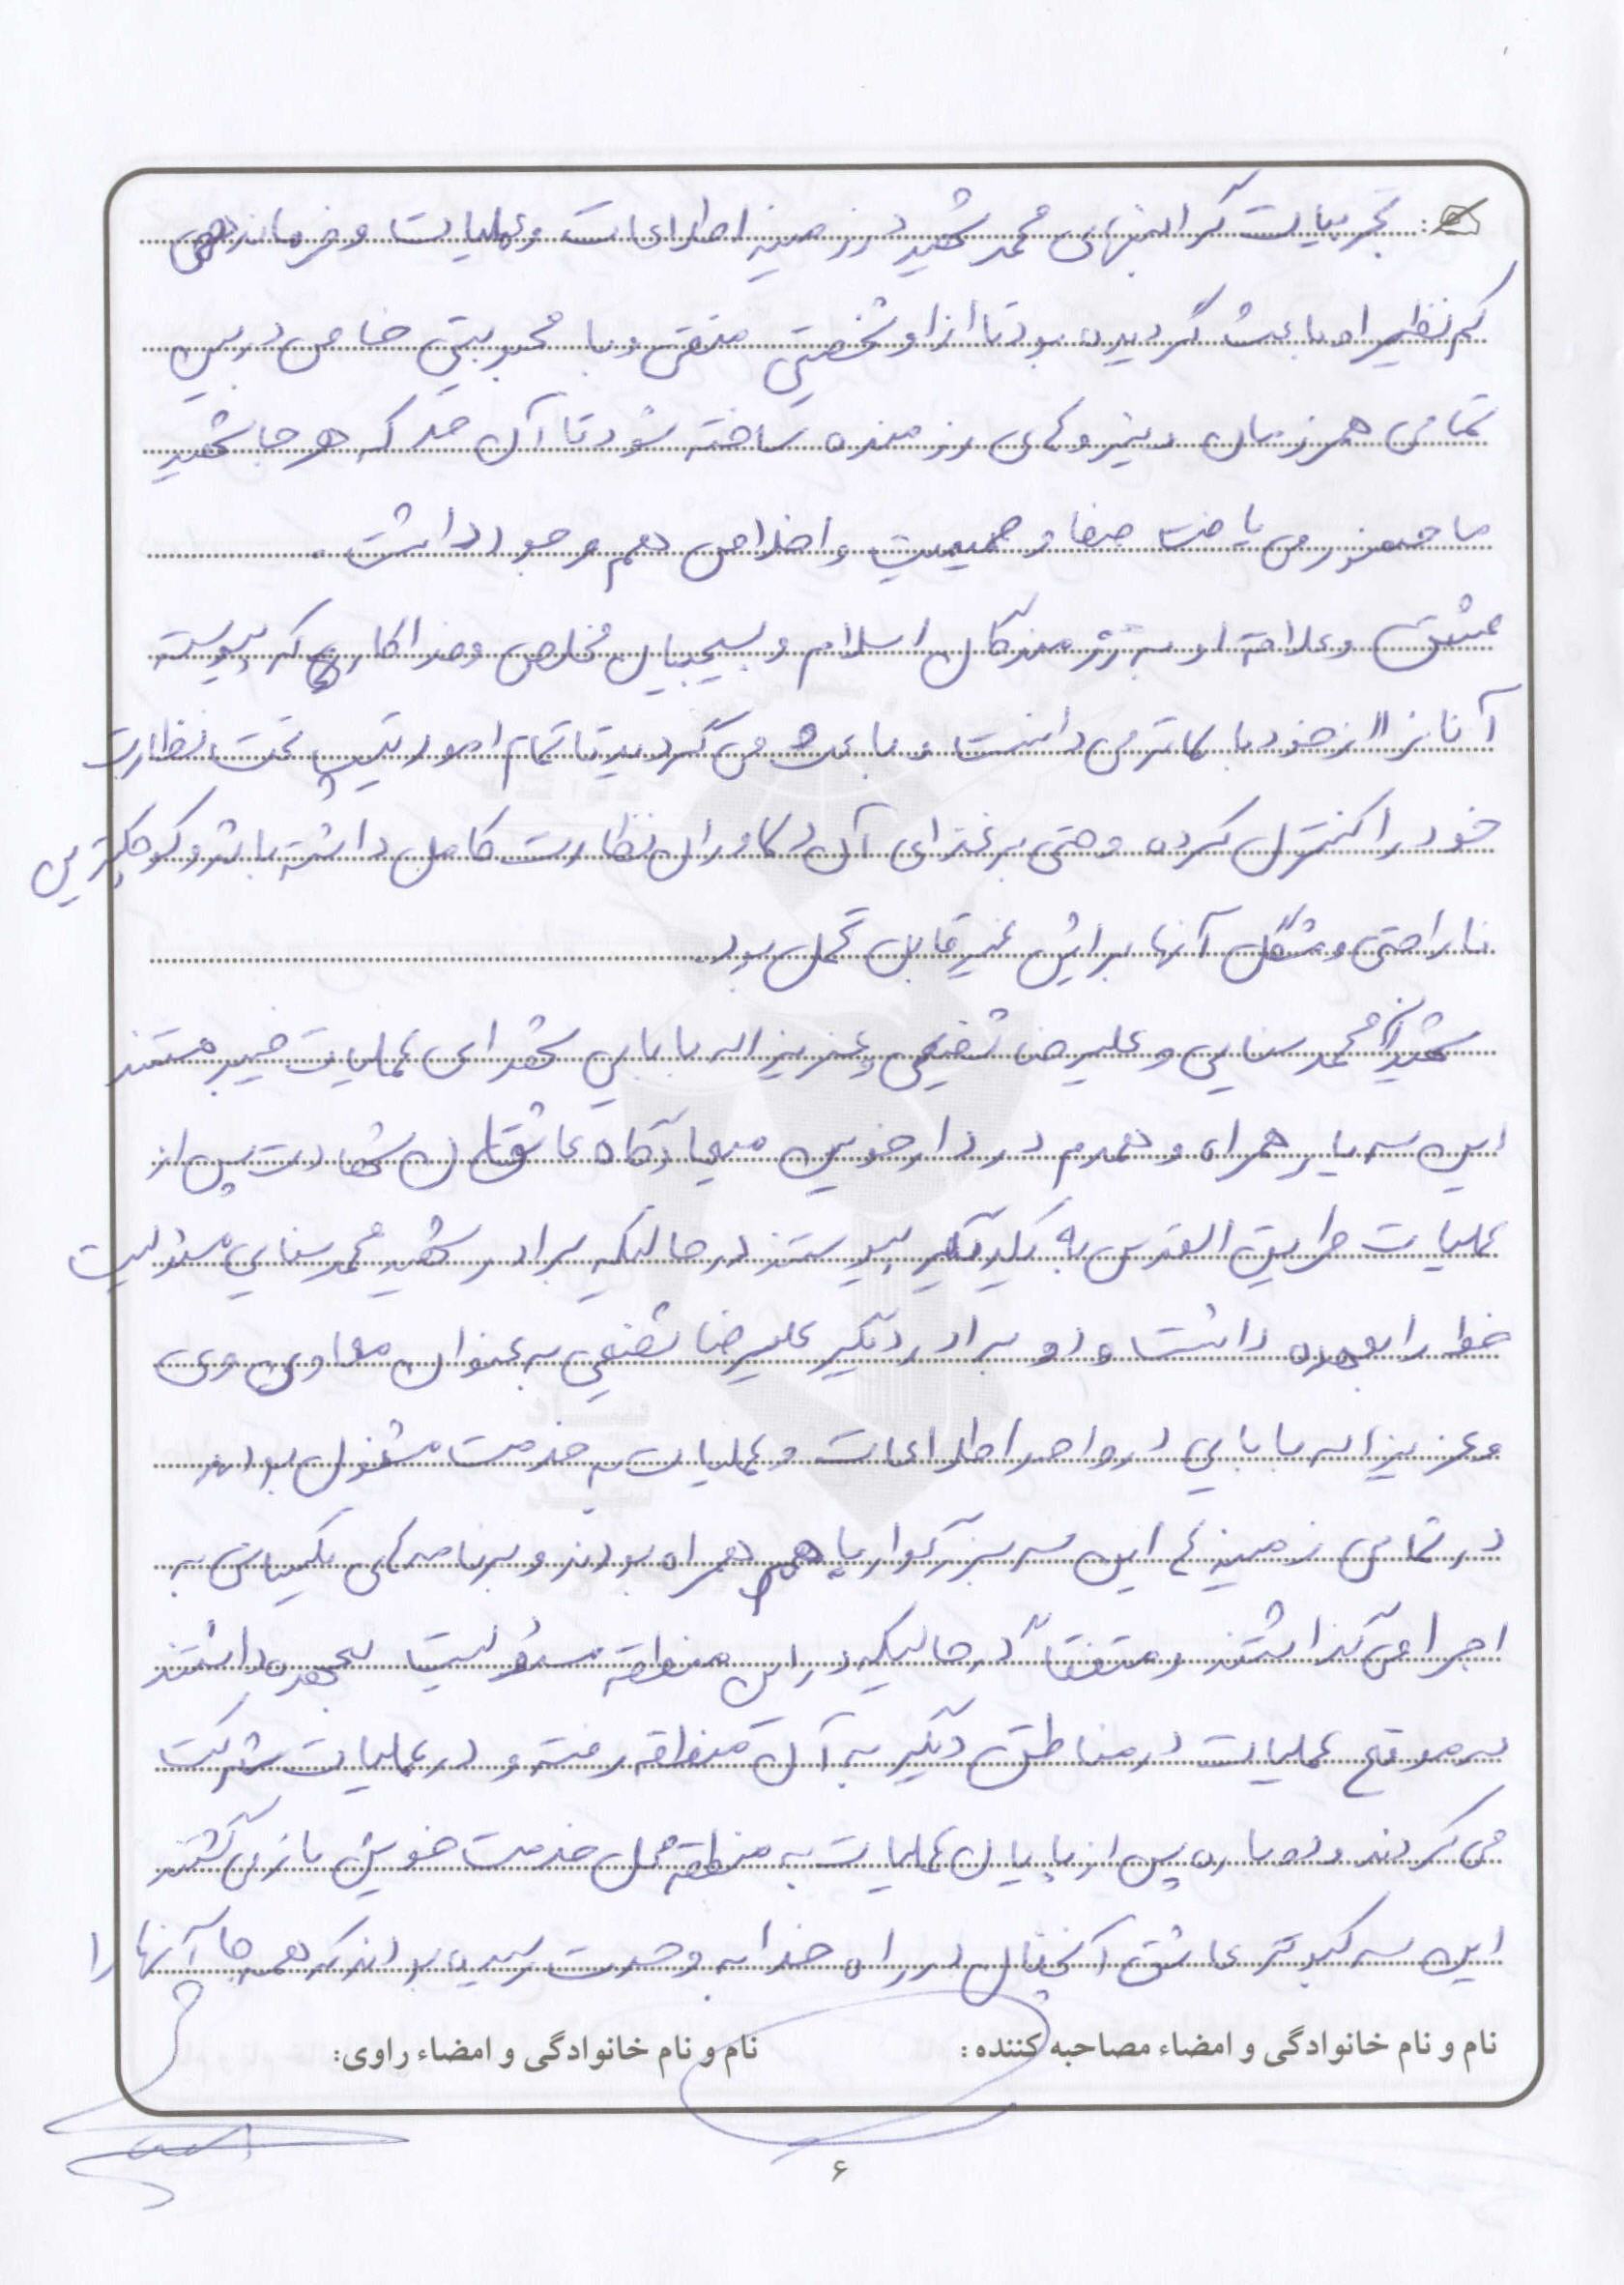 تجربیات گرانبهای محمد شهید در زمینه اطلاعات و عملیات و فرماندهی
کم نظیر او باعث گردیده بود تا از او شخصیتی متقی و با محبوبیتی خاص در بین
تمامی همرزمان و نیروهای رزمنده ساخته شود تا آن حد که هر جا شهید
ما حضور می یافت صفا و صمیمیت و اخلاص هم وجود داشت.
عشق و علاقه او به رزمندگان اسلام و بسیجیان مخلص و فداکاری که پیوسته
آنانرا از خود بالاتر می دانست و باعث می گردید تا تمام امور تیپ تحت نظارت
خود را کنترل کرده و حتی بر غذای آن دلاوران نظارت کامل داشته باشد و کوچکترین
ناراحتی و مشکل آنها برایش غیر قابل تحمل بود.
شهیدان محمد سنایی و علیرضا شفیعی و عزیزاله بابایی شهدای عملیات خیبر هستند
این سه یار همراه و همدم در دارخوین میعادگاه عاشقان شهادت پس از
عملیات طریق القدس به یکدیگر پیوستند در حالیکه برادر شهید محمد سنایی مسئولیت
خط را بعهده داشت و دو برادر دیگر علیرضا شفیعی به عنوان معاون وی
و عزیزاله بابایی در واحد اطلاعات و عملیات به خدمت مشغول بودند
در تمامی زمینه ها این سه بزرگوار با هم همراه بودند و برنامه های یکسانی به
اجرا می گذاشتند و متفقاً در حالیکه در این منطقه مسئولیت بعهده داشتند
به موقع عملیات در مناطق دیگر به آن منطقه رفته و در عملیات شرکت
می کردند و دوباره پس از پایان عملیات به منطقه محل خدمت خویش باز می گشتند
این سه کبوتر عاشق آنچنان در راه خدا به وحدت رسیده بودند که همه جا آنها را
نام و نام خانوادگی و امضاء مصاحبه کننده: نام و نام خانوادگی و امضاء راوی:
۶